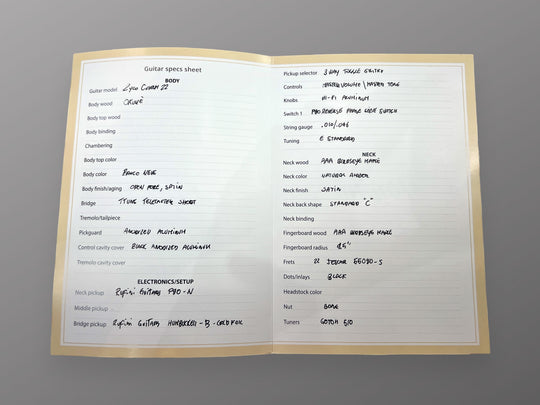 Guitar specs sheet
BODY
Guitar model
Body wood Okumè
Body top wood
Body binding
Chambering
Body top color
Body color Bianco Neve
Body finish/aging Open pore, satin
Bridge Ttune Telemaster short
Tremolo/tailpiece
Pickguard Anodized aluminum
Control cavity cover Black anodized aluminum
Tremolo cavity cover
ELECTRONICS/SETUP
Neck pickup Guitars P90-N
Middle pickup -
Bridge pickup Guitars Humbucker-B-Gold foil
Pickup selector 3 way toggle switch
Controls Master volume \ Master tone
Knobs Hi-Fi aluminum
Switch 1 Mod reverse phase switch
String gauge .010/.046
Tuning E standard
NECK
Neck wood AAA Birdseye maple
Neck color Natural amber
Neck finish Satin
Neck back shape Standard "C"
Neck binding
Fingerboard wood AAA Birdseye maple
Fingerboard radius
Frets 22 Jescar 55090-S
Dots/inlays Block
Headstock color
Nut Bone
Tuners Gotoh 510